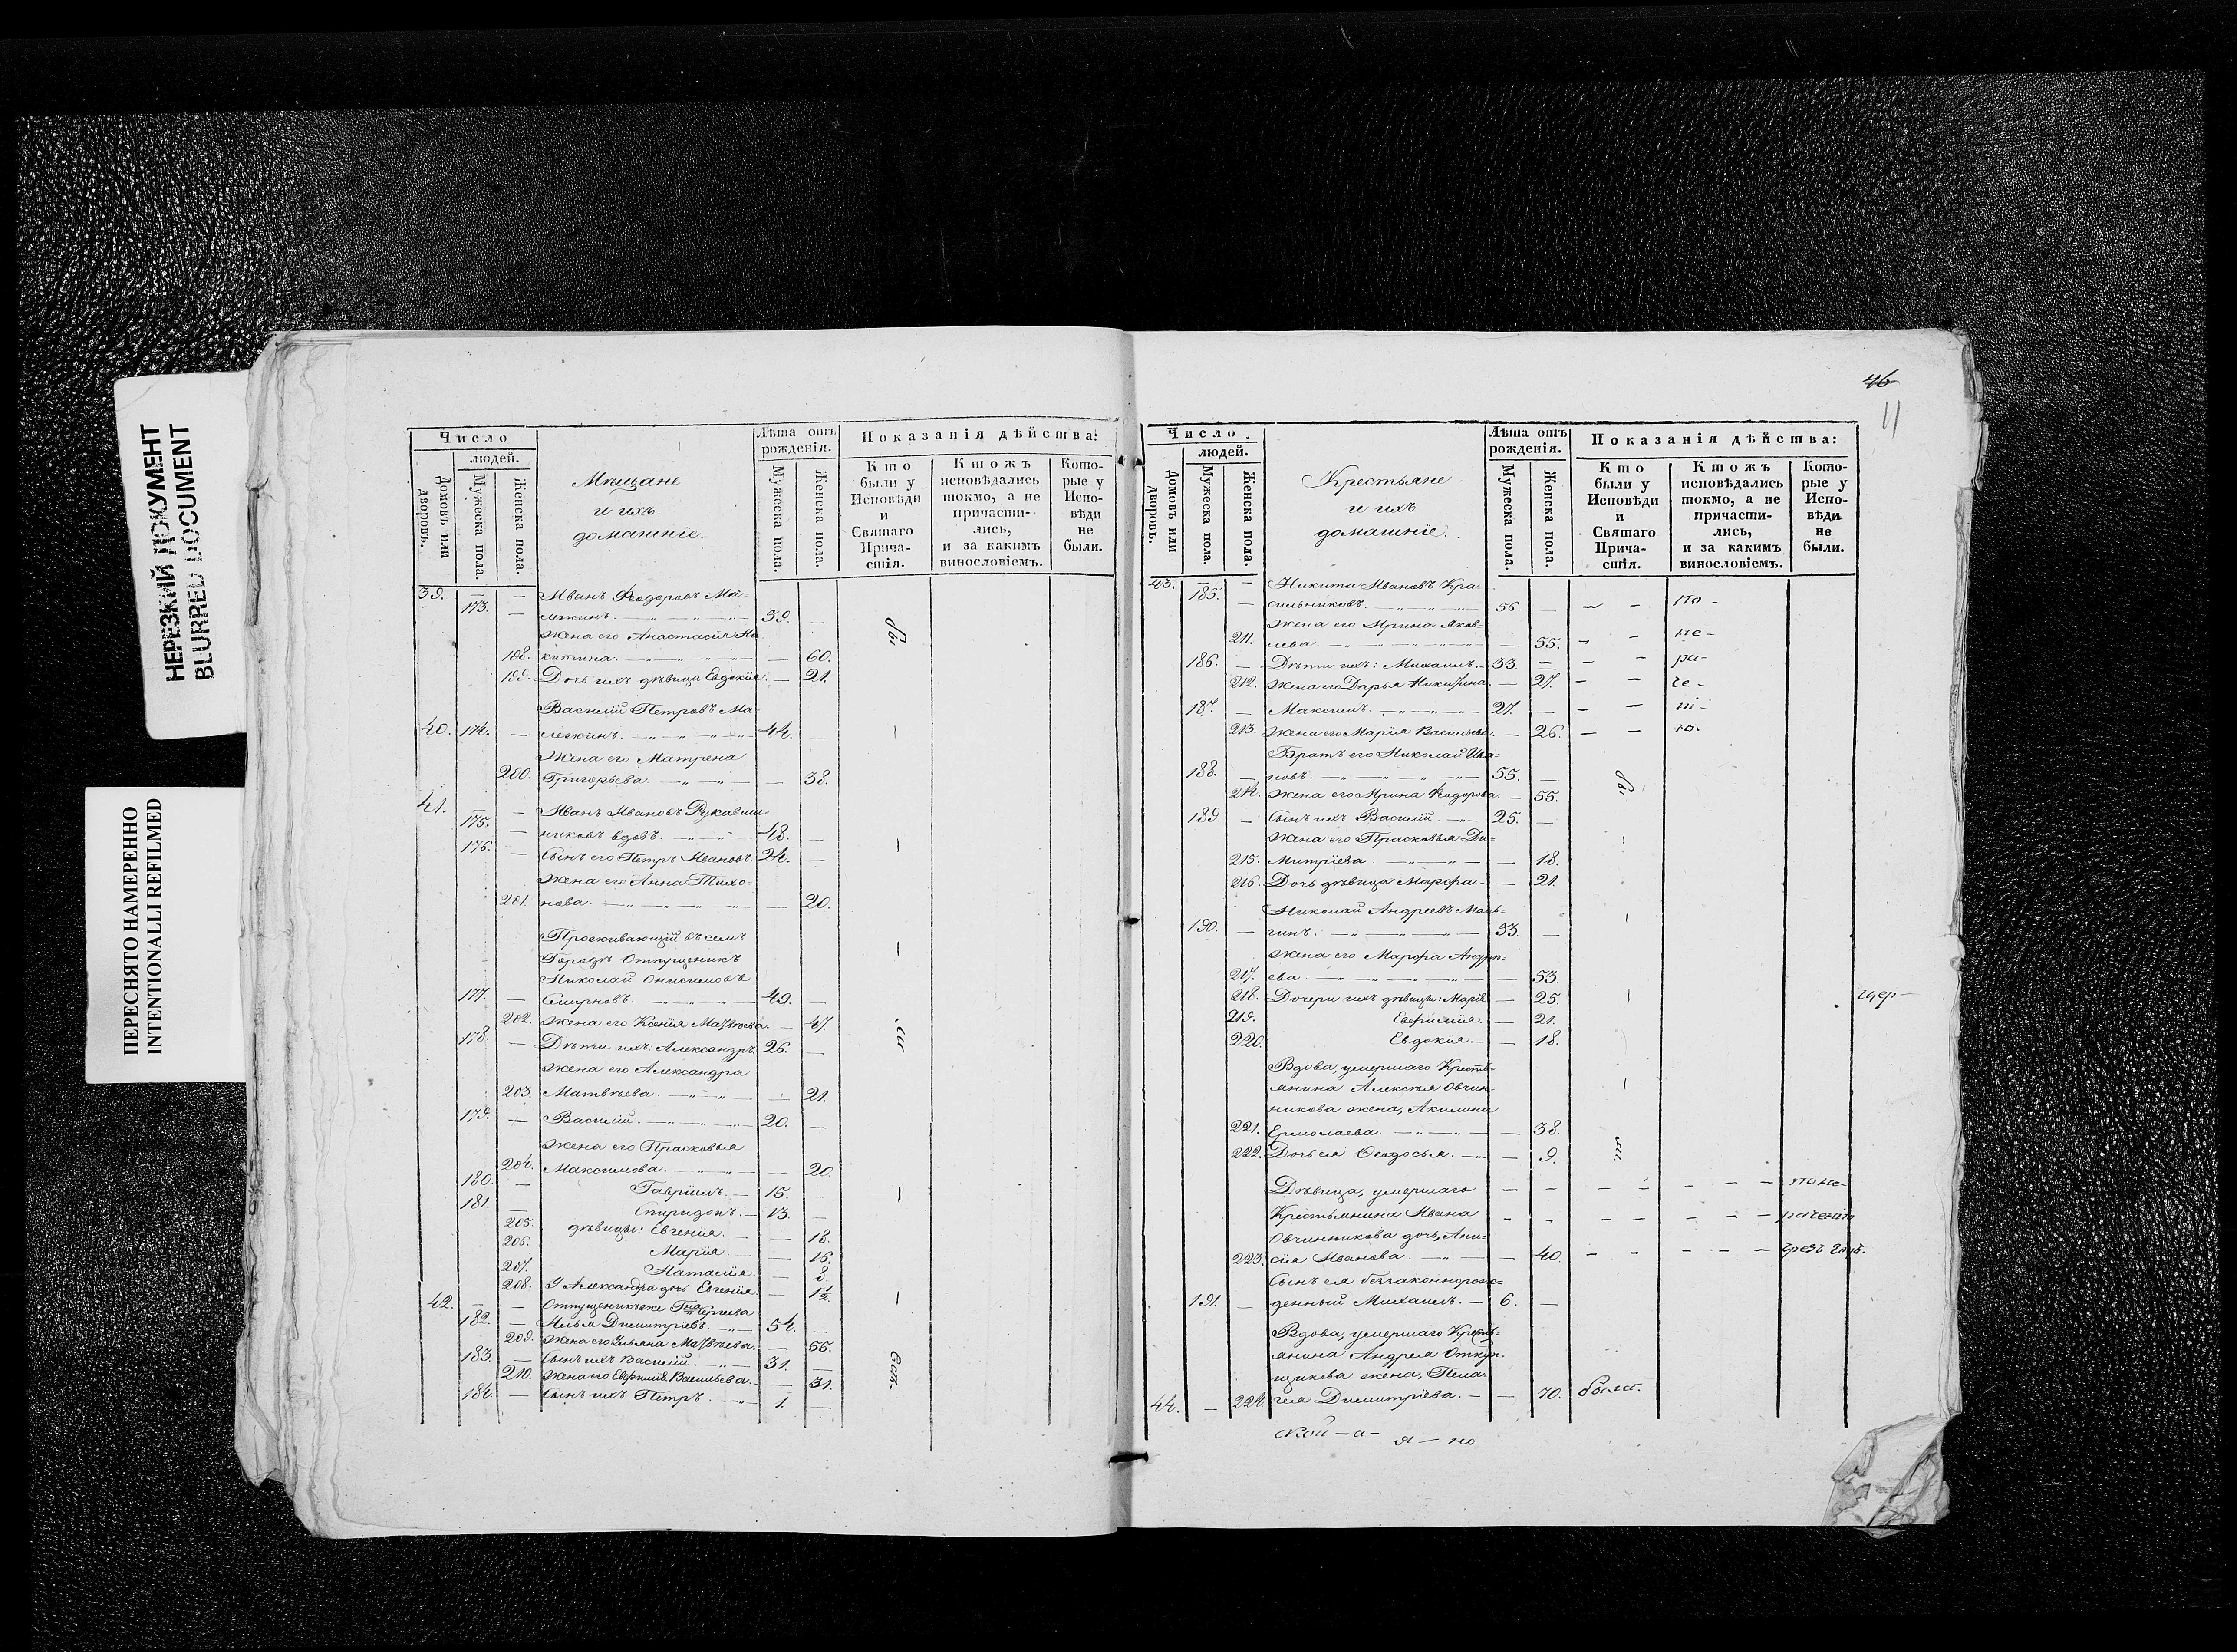 НЕРЕЗКИЙ ДОКУМЕНТ
BLURRED DOCUMENT
ПЕРЕСНЯТО НАМЕРЕННО
INTENTIONALLI REFILMED
Число
людей.
Домовъ или дворовъ.
Мужеска пола.
Женска пола.
Мѣщане
и ихъ
домашніе.
Лѣта отъ рожденія.
Мужеска пола.
Женска пола.
Показанія дѣйства:
Кто были у Исповѣди и Святаго Причастія.
Ктожъ исповѣдались токмо, а не причастились, и за какимъ винословіемъ.
Которые у Исповѣди не были.
39. — — Иванъ Ѳеодоровъ Ма-
173. — лежинъ. 39. —
Жена его Анастасія Ни-
198. китина. — 60.
199. Дочь ихъ дѣвица Евдокія. — 21.
Василій Петровъ Ма-
40. 174. — лежинъ. 44. —
Жена его Матрена
200. Григорьева. — 38.
41. — — Иванъ Ивановъ Рукавиш-
175. — никовъ вдовъ. 48. —
176. — Сынъ его Петръ Ивановъ. 24. —
Жена его Анна Тихо-
201. нова. — 20.
Проживающій въ семъ
Городѣ Отпущеникъ
Николай Онисимовъ
177. — Смирновъ. 49. —
202. Жена его Ксенія Матвѣева. — 47.
178. — Дѣти ихъ: Александръ. 26. —
Жена его Александра
203. Матвѣева. — 21.
179. — Василій. 20. —
Жена его Прасковья
204. Максимова. — 20.
180. — Гавріилъ. 15. —
181. — Спиридонъ. 13. —
205. дѣвицы: Евгенія. — 18.
206. Марія. — 16.
207. Наталія. — 8.
208. У Александра дочь Евгенія. — 1½.
42. — — Отпущеникъже
182. — Илья Димитріевъ. 54. —
209. Жена его Ульяна Матвѣева. — 55.
183. — Сынъ ихъ Василій. 31. —
210. Жена его Евфимія Васильева. — 31.
184. — Сынъ ихъ Петръ. 1. —
бы
ли
46
11
Число.
людей.
Домовъ или дворовъ.
Мужеска пола.
Женска пола.
Крестьяне
и ихъ
домашніе.
Лѣта отъ рожденія.
Мужеска пола.
Женска пола.
Показанія дѣйства:
Кто были у Исповѣди и Святаго Причастія.
Ктожъ исповѣдались токмо, а не причастились, и за какимъ винословіемъ.
Которые у Исповѣди не были.
43. — — Никита Ивановъ Кра-
185. — сильниковъ. 56. — — — по -
Жена его Ирина Яков-
211. лева. — 55. — — не -
186. — Дѣти ихъ: Михаилъ. 33. — — — ра -
212. Жена его Дарья Никитина. — 27. — — че -
187. — Максимъ. 27. — — —
213. Жена его Марія Васильева. — 26. — —
Братъ его Николай Ива-
188. — новъ. 55. —
214. Жена его Ирина Ѳеодорова. — 55.
189. — Сынъ ихъ Василій. 25. —
Жена его Прасковья Ди-
215. митріева. — 18.
216. Дочь дѣвица Марфа. — 21.
Николай Андреевъ
190. — гинъ. 53. —
Жена его Марфа Андре-
217. ева. — 53.
218. Дочери ихъ дѣвицы: Марія. — 25.
219. Евфимія. — 21.
220. Евдокія. — 18.
Вдова, умершаго Кресть-
янина Алексѣя Овчин-
никова жена, Акилина
221. Ермолаева. — 38.
222. Дочь ея Ѳеодосья. — 9.
Дѣвица, умершаго — — — — — — — по не-
Крестьянина Ивана — — — — — — — раченію
Овчинникова дочь, Ани-
223. сія Иванова. — 40. — — — — —
Сынъ ея беззаконнорож-
191. — денный Михаилъ. 6. —
Вдова, умершаго Кресть-
янина Андрея Откуп-
щикова жена, Пела-
44. — 224. гея Димитріева. — 70.
бы
ли
ской — а — я — но